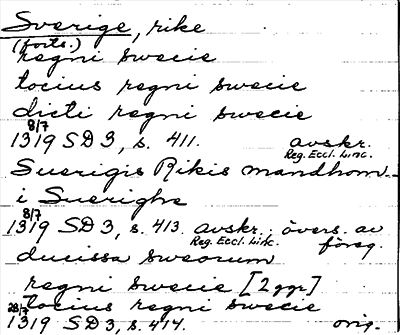 Sverige, rike
(forts.)
regni swecie
tocius regni swecie
dicti regni swecie
8/7
1319 SD 3, s. 411. avskr.
Reg. Eccl. Linc.
Suerigis Rikis mandhom-
i Suerighe
8/7
1319 SD 3, s. 413. avskr., övers. av
Reg. Eccl. Linc. föreg.
ducissa sweorum
regni swecie [2 ggr]
tocius regni swecie
28/7
1319 SD 3, s. 414. orig.